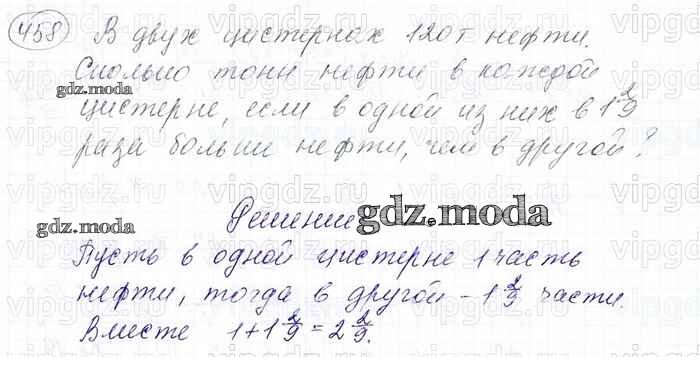 458 В двух цистернах 120т нефти.
Сколько тонн нефти в каждой
цистерне, если в одной из них в 1 2/9
раза больше нефти, чем в другой?
Решение
Пусть в одной цистерне 1 часть
нефти, тогда в другой – 1 2/9 части.
Вместе 1+1 2/9 = 2 2/9.
gdz.moda
gdz.moda
gdz.moda
vipgdz.ru